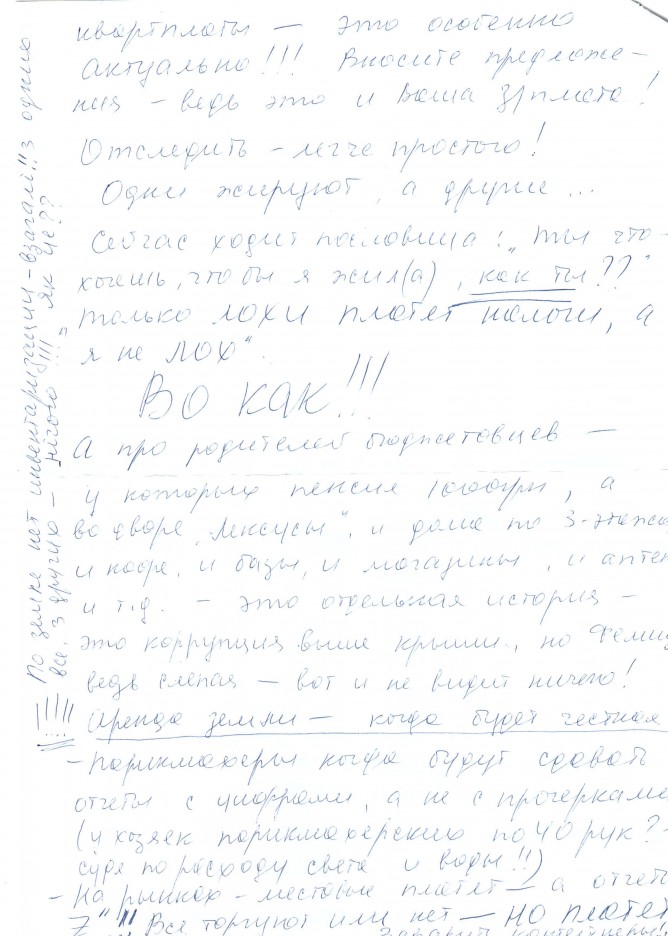 квартплаты — это особенно
актуально!!! Вносите предложе-
ния - ведь это и Ваша з/плата!
Отследить - легче простого!
Одни жируют, а другие ...
Сейчас ходит пословица: „Ты что-
хочешь, чтобы я жил(а), как ты??"
только лохи платят налоги, а
я не ЛОХ".
ВО КАК!!!
А про родителей бюджетовцев —
у которых пенсия 1000грн, а
во дворе „Лексусы", и дома по 3-этажа
и кафе, и базы, и магазины, и аптеки
и т.д. - это отдельная история -
это коррупция выше крыши, но Фемида
ведь слепая - вот и не видит ничего!
!!!!! Аренда земли - когда будет честная
- Парикмахеры когда будут сдавать
отчеты с цифрами, а не с прочерками
(у хозяек парикмахерских по 40 рук?
судя по расходу света и воды!!)
- На рынках - местовые платят - а отчеты
Z" !!! Все торгуют или нет - НО ПЛАТЯТ
По земле нет инвентаризации - взагалі!! З одних
все, з других - нічого!!! Як це??